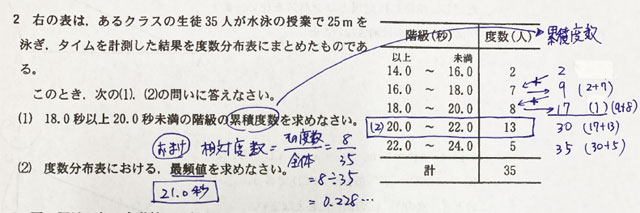 2 右の表は，あるクラスの生徒35人が水泳の授業で25mを
泳ぎ，タイムを計測した結果を度数分布表にまとめたものであ
る。
このとき，次の(1)，(2)の問いに答えなさい。
(1) 18.0秒以上20.0秒未満の階級の累積度数を求めなさい。
おまけ 相対度数＝ 度数/全体 ＝ 8/35
＝8÷35
＝0.228…
(2) 度数分布表における，最頻値を求めなさい。
21.0秒
階級(秒) 度数(人) 累積度数
以上 未満
14.0 ～ 16.0 2 2
16.0 ～ 18.0 7 9 (2+7)
18.0 ～ 20.0 8 17 (1) (9+8)
(2) 20.0 ～ 22.0 13 30 (17+13)
22.0 ～ 24.0 5 35 (30+5)
計 35